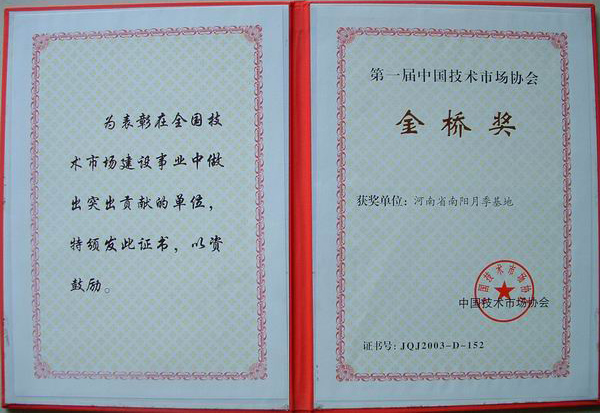 为表彰在全国技
术市场建设事业中做
出突出贡献的单位，
特颁发此证书，以资
鼓励。
第一届中国技术市场协会
金桥奖
获奖单位：河南省南阳月季基地
中国技术市场协会
中国技术市场协会
证书号：JQJ2003-D-152